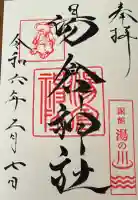 奉拝
函館
湯の川
湯倉神社
令和六年五月七日